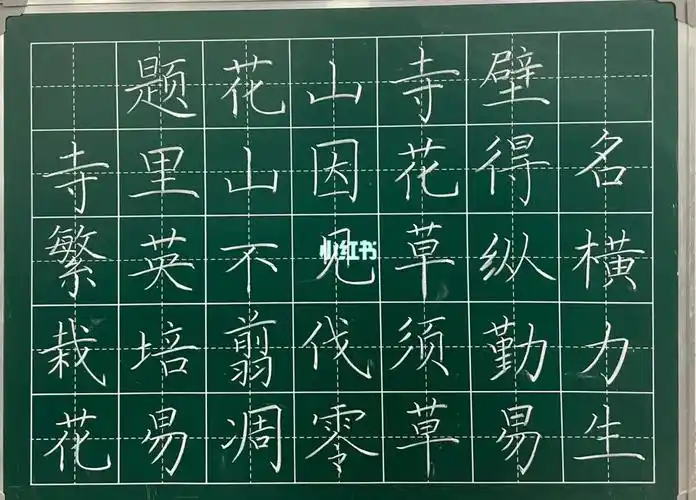 题花山寺壁
寺里山因花得名
繁英不见草纵横
栽培剪伐须勤力
花易凋零草易生
小红书